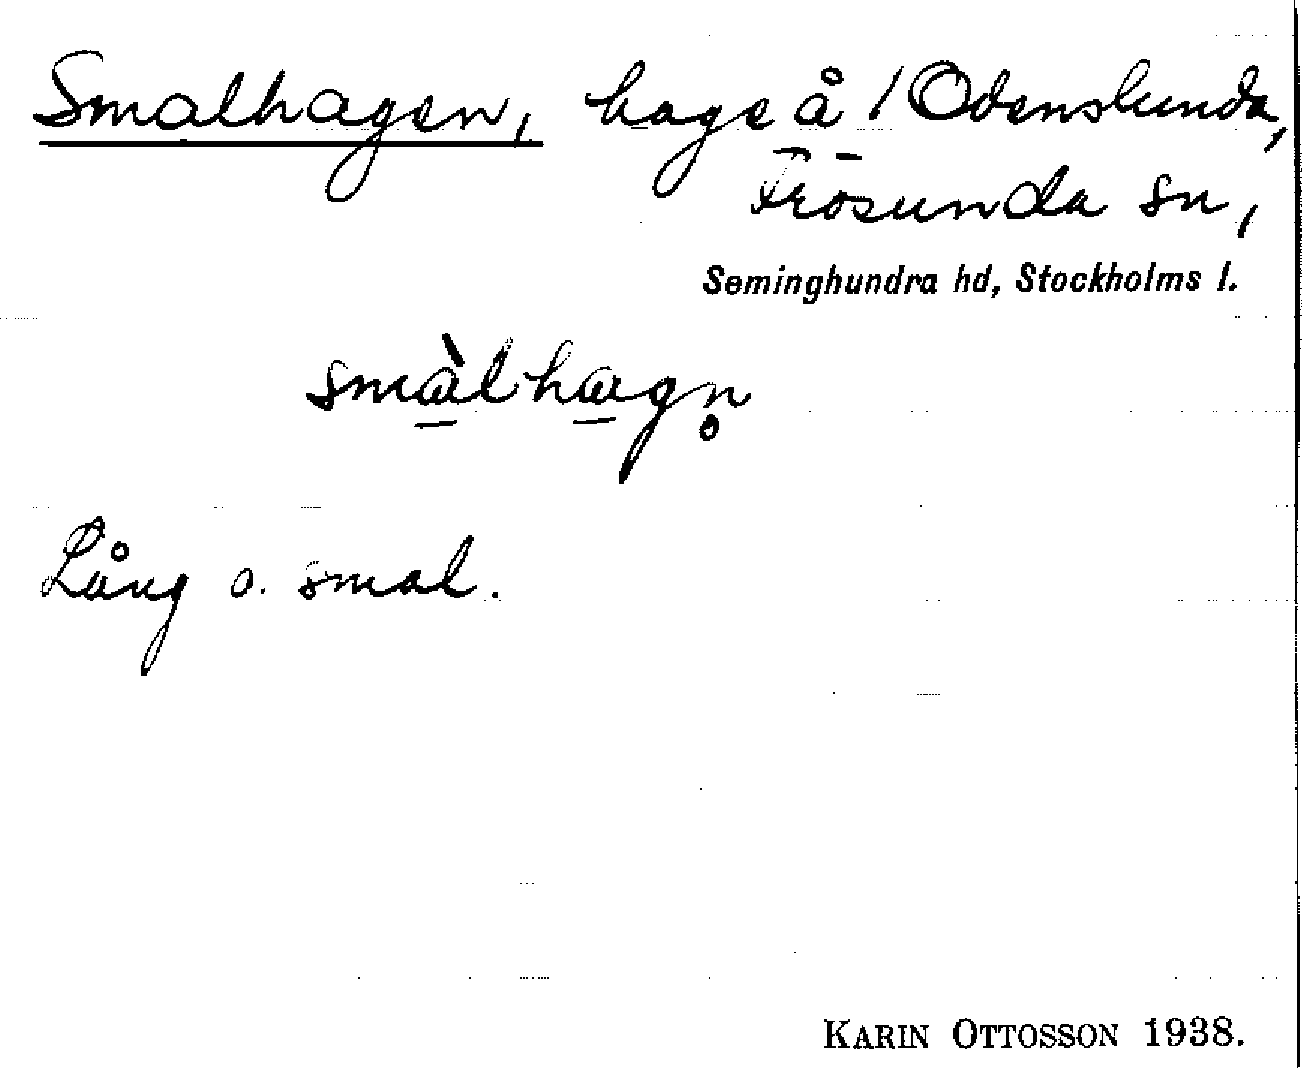 Smalhagen, hage å /Odenslunda,
Frösunda sn,
Seminghundra hd, Stockholms l.
smàlhagn̥
Lång o. smal.
KARIN OTTOSSON 1938.